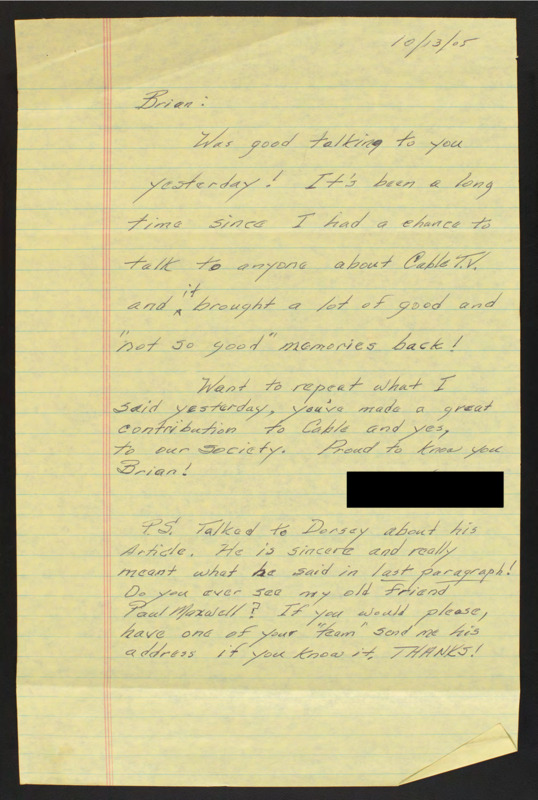 10/13/05
Brian:
Was good talking to you
yesterday! It's been a long
time since I had a chance to
talk to anyone about Cable T.V.
and it brought a lot of good and
"not so good" memories back!
Want to repeat what I
said yesterday, you've made a great
contribution to Cable and yes,
to our society. Proud to know you
Brian!
P.S. Talked to Dorsey about his
Article. He is sincere and really
meant what he said in last paragraph!
Do you ever see my old friend
Paul Maxwell? If you would please,
have one of your "team" send me his
address if you know it. THANKS!